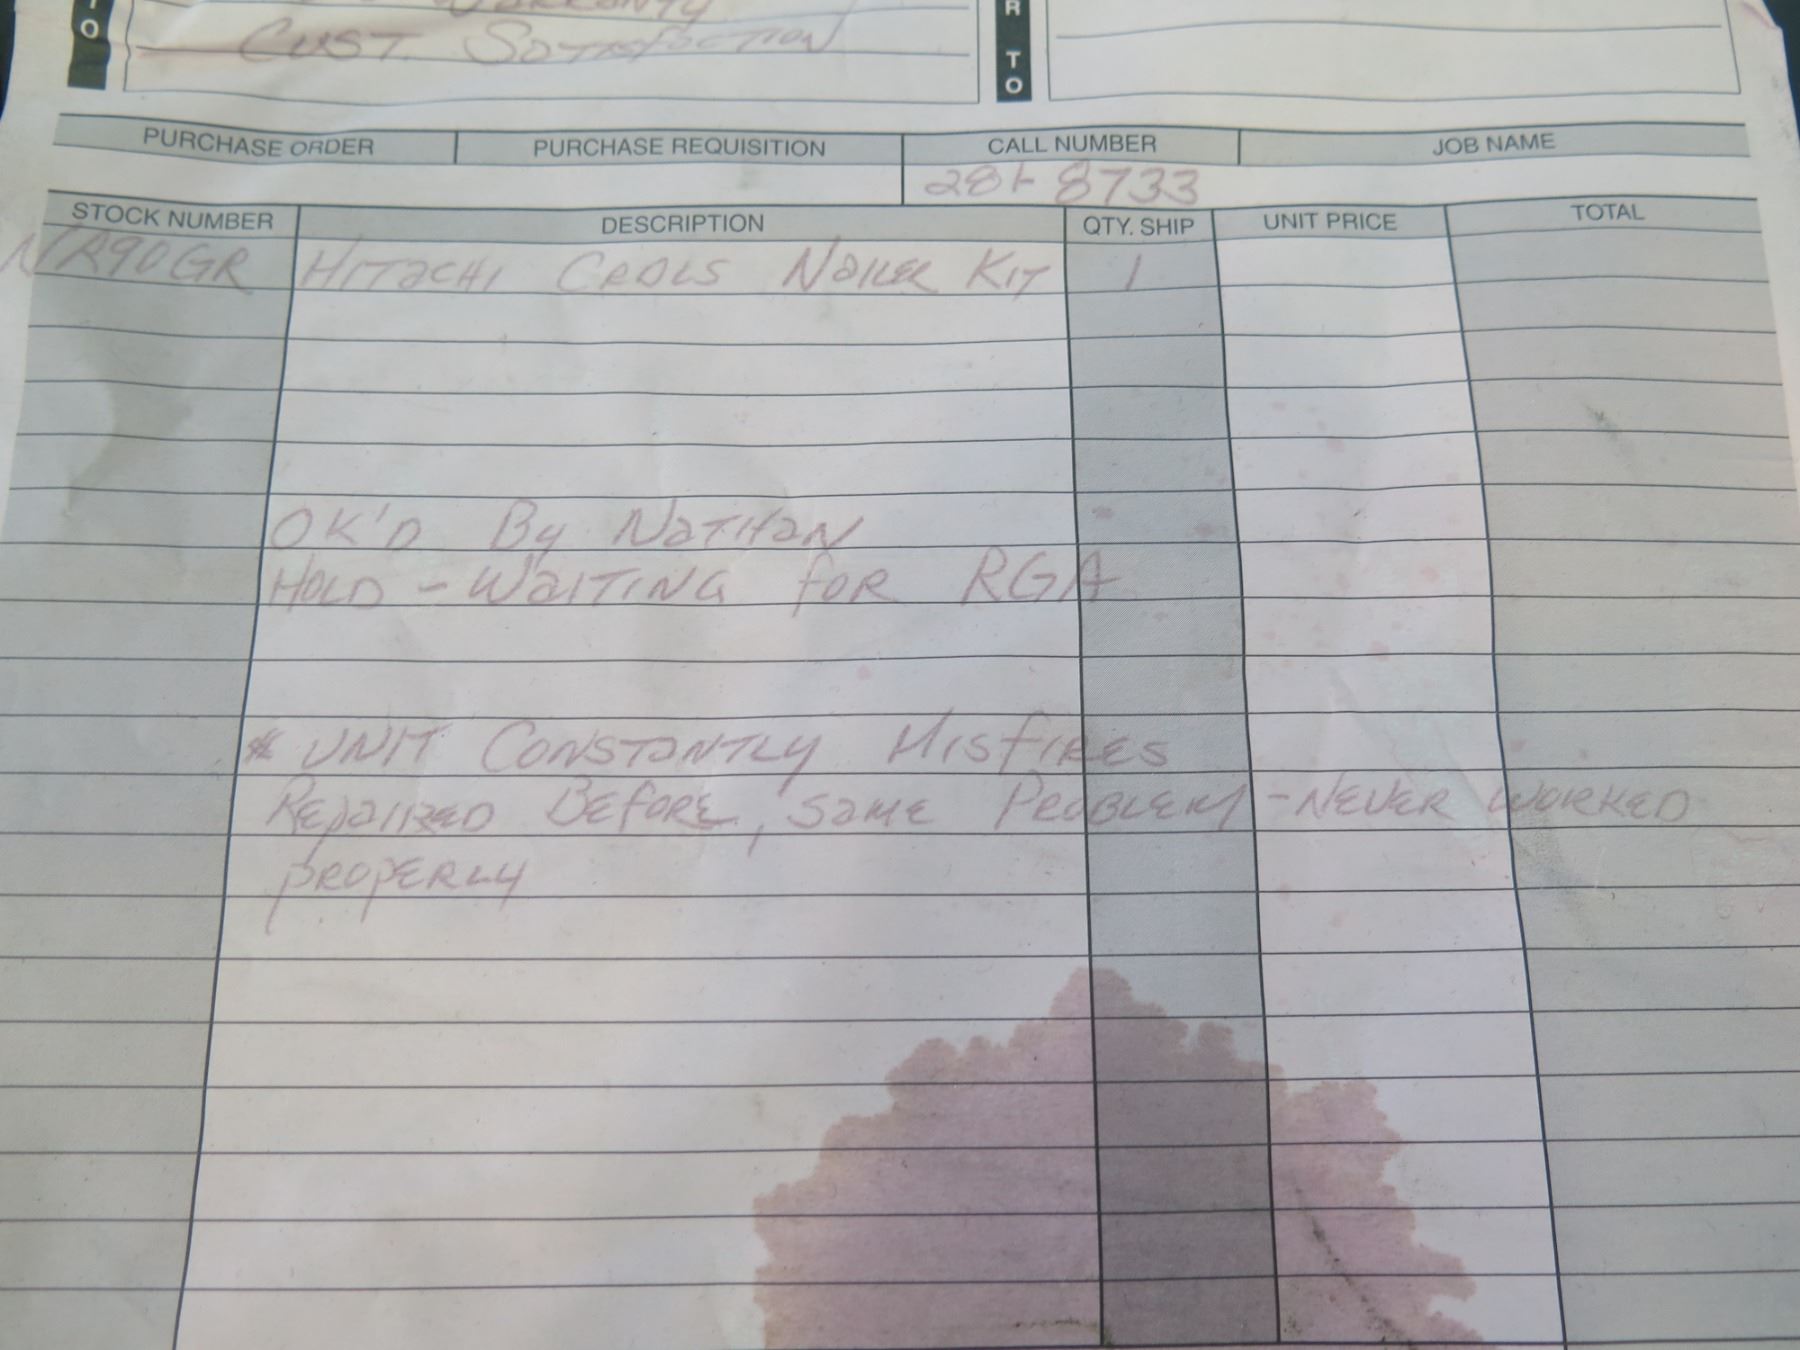 TO
WARRANTY
CUST. SATISFACTION
R TO
PURCHASE ORDER PURCHASE REQUISITION CALL NUMBER JOB NAME
281-8733
STOCK NUMBER DESCRIPTION QTY. SHIP UNIT PRICE TOTAL
NR90GR HITACHI CRDLS NAILER KIT 1
OK'D By NATHAN
HOLD - WAITING FOR RGA
* UNIT CONSTANTLY MISFIRES
REPAIRED BEFORE, SAME PROBLEM - NEVER WORKED
PROPERLY